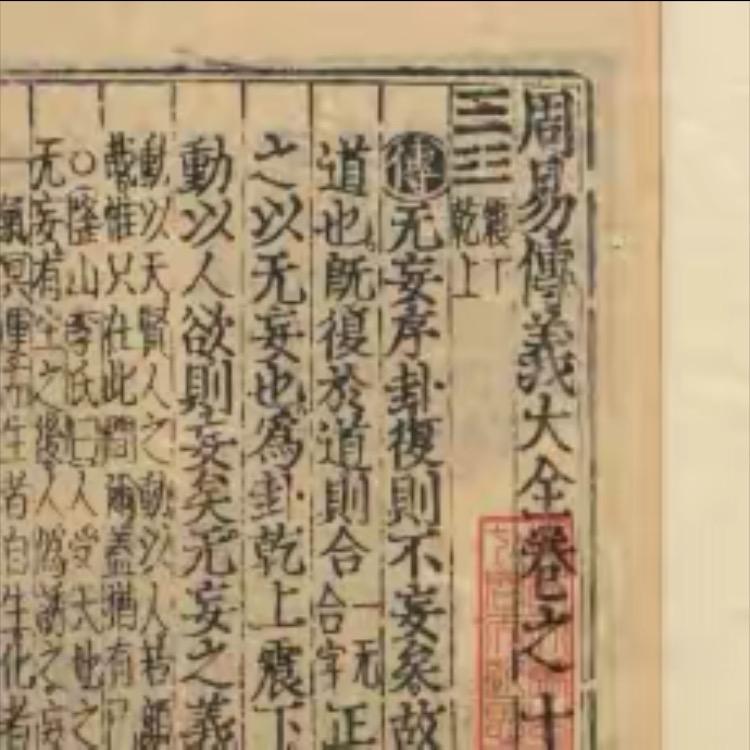 周易傳義大全卷之十
震下
乾上
傳无妄序卦復則不妄矣故
道也既復於道則合一无合字正
之以无妄也為卦乾上震下
動以人欲則妄矣无妄之義
動以天賢人之動以人若
在此間爾蓋猶有
○隆山李氏曰人受天地之
无妄有生之後人僞誘之妄
生者自生化者